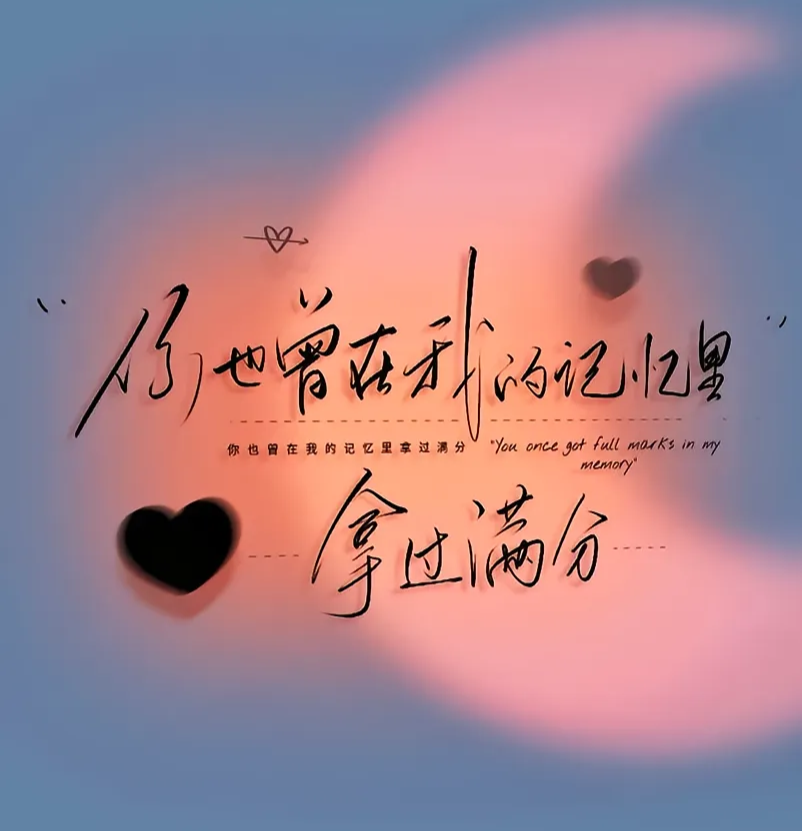 “你也曾在我的记忆里”
你也曾在我的记忆里拿过满分
"You once got full marks in my
memory"
拿过满分